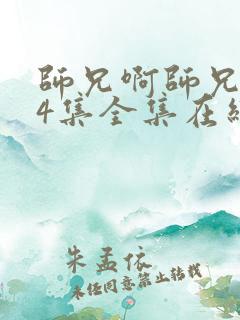 師兄啊師兄
4集全集在線
朱孟依
未經同意禁止轉載